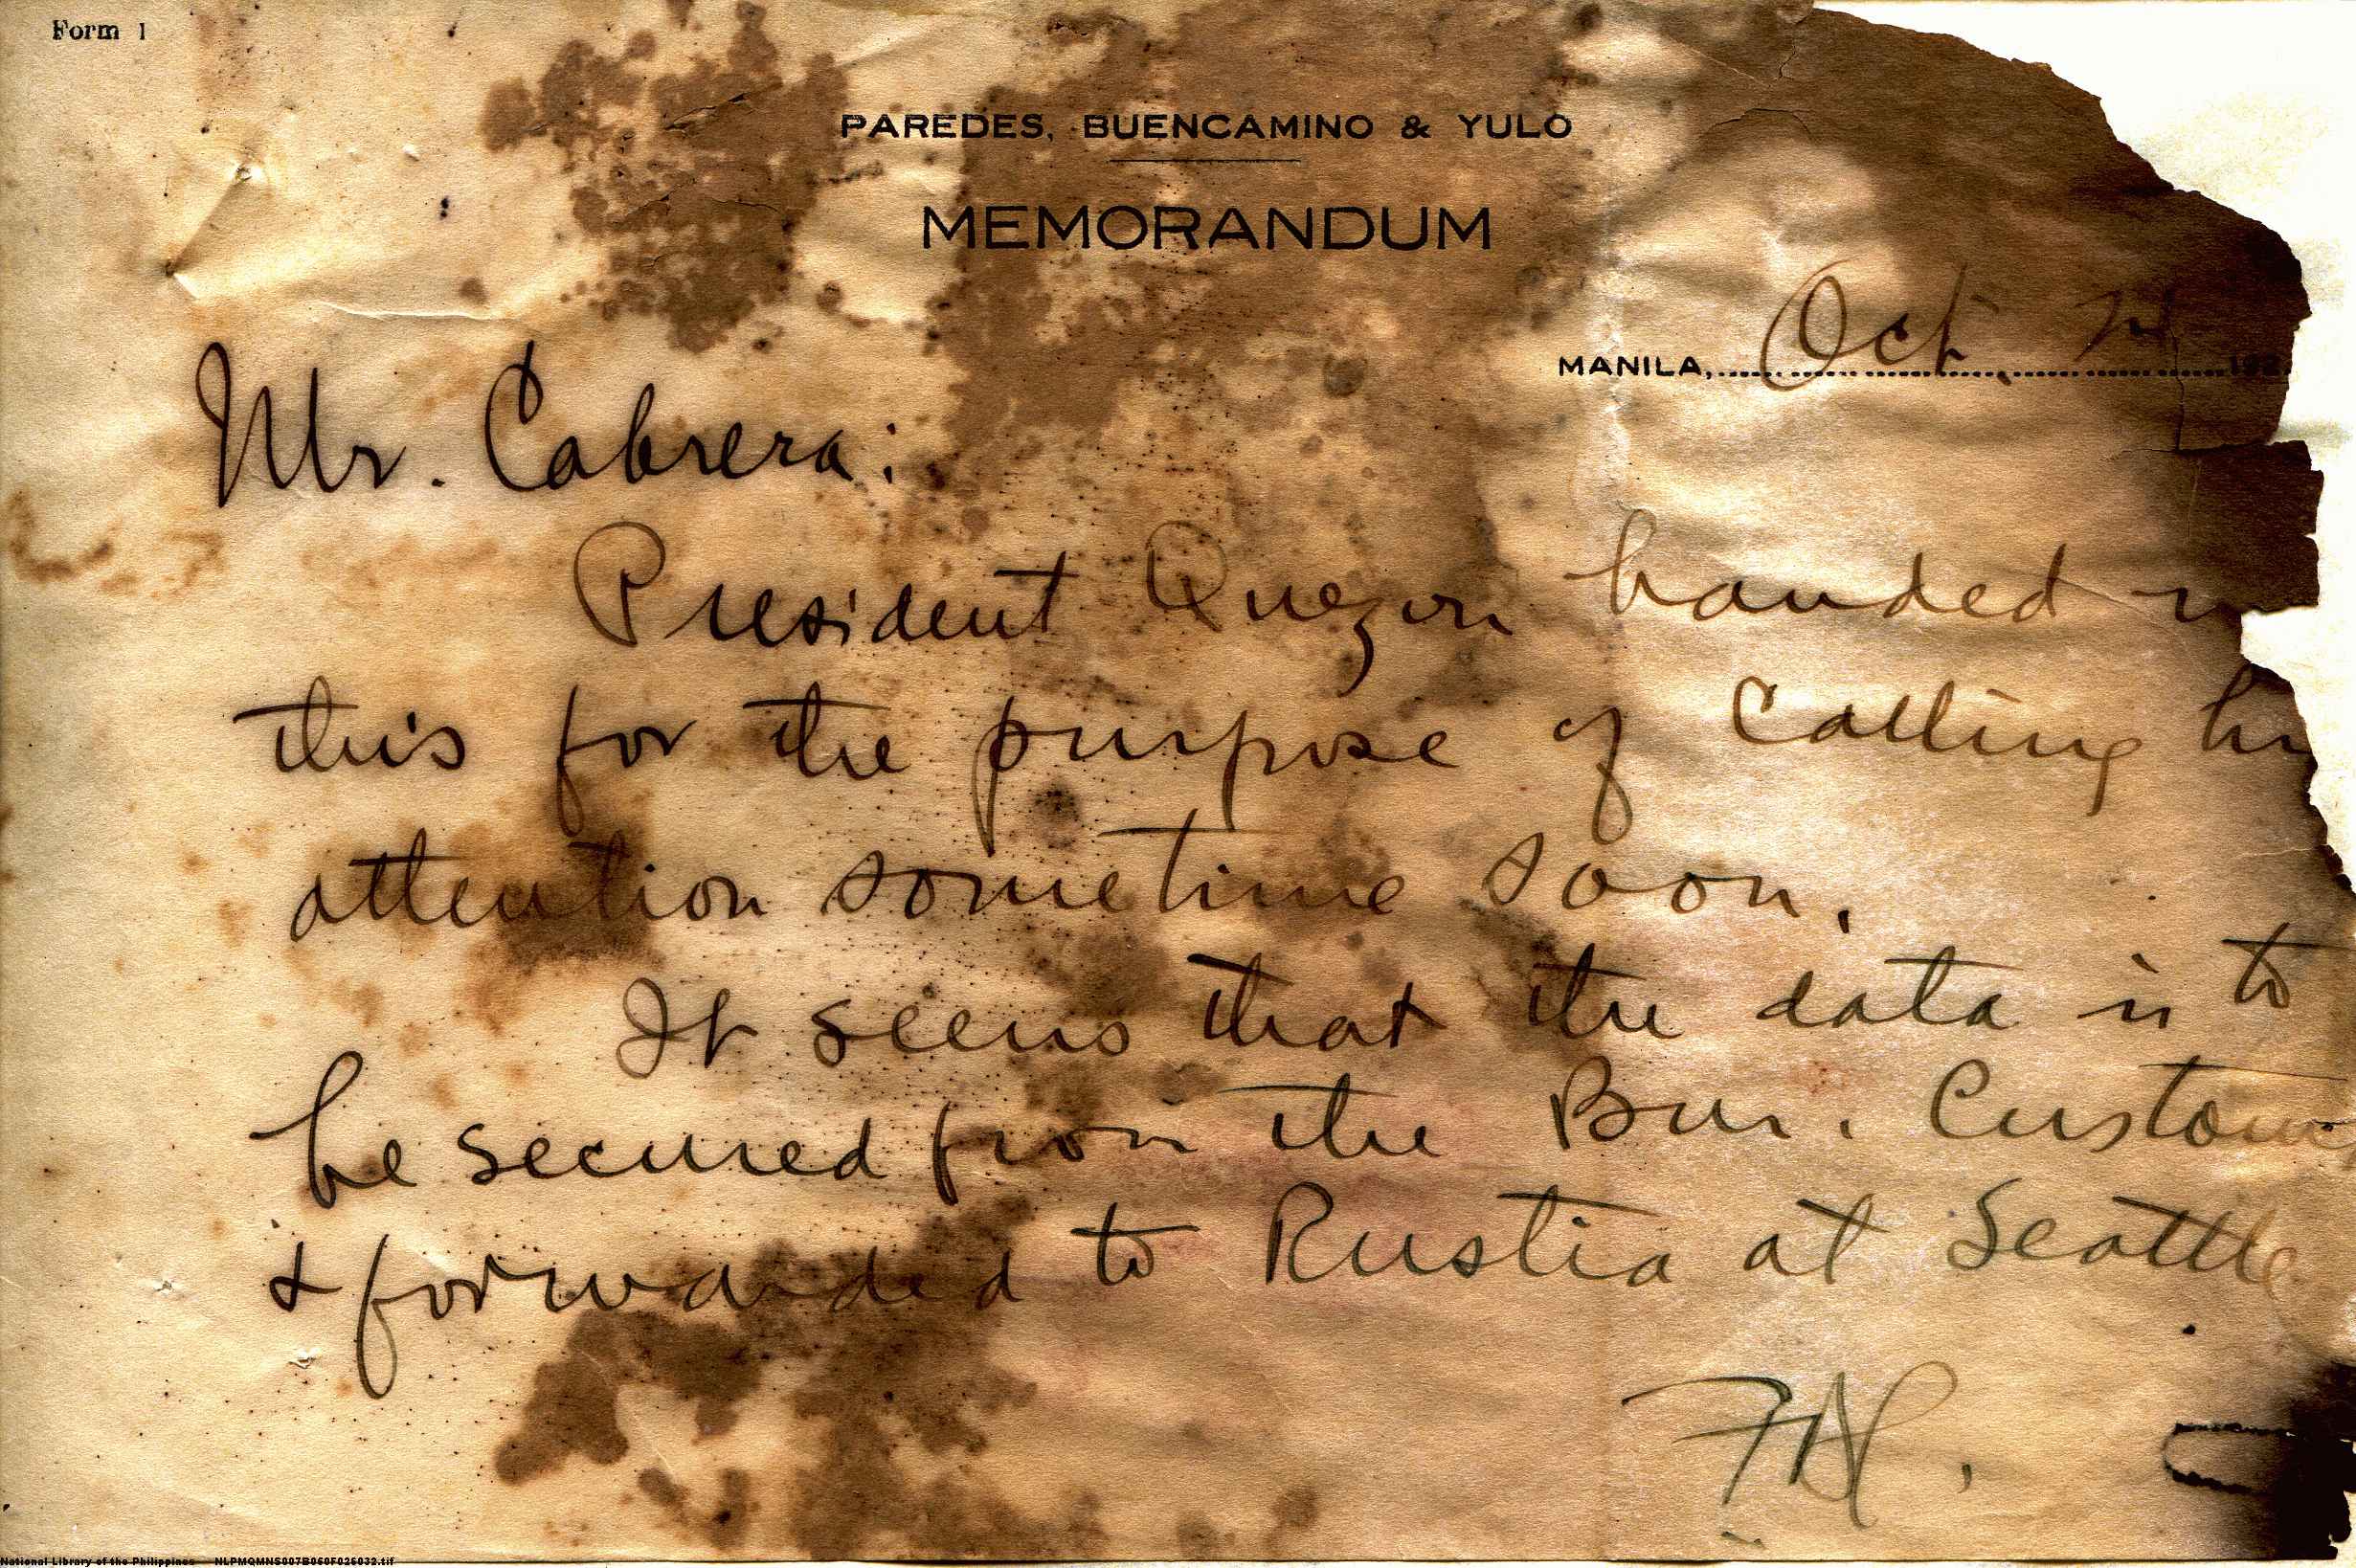 Form 1
PAREDES, BUENCAMINO & YULO
MEMORANDUM
MANILA, Oct. 192
Mr. Cabrera:
President Quezon handed
this for the purpose of calling
attention sometime soon.
It seems that the data is to
be secured from the Bur. Customs
& forwarded to Rustia at Seattle
National Library of the Philippines NLPMQMNS007B060F026032.tif